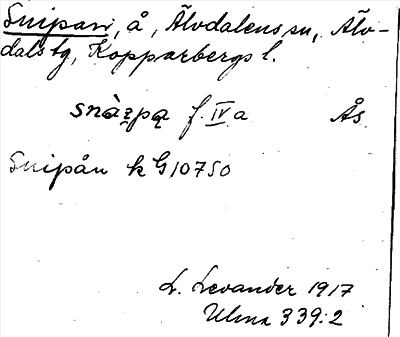 Snipan, å, Älvdalens sn, Älv-
dals tg, Kopparbergs l.
snàı̨pą f. IV a Ås
Snipån k G10750
L. Levander 1917
Ulma 339:2